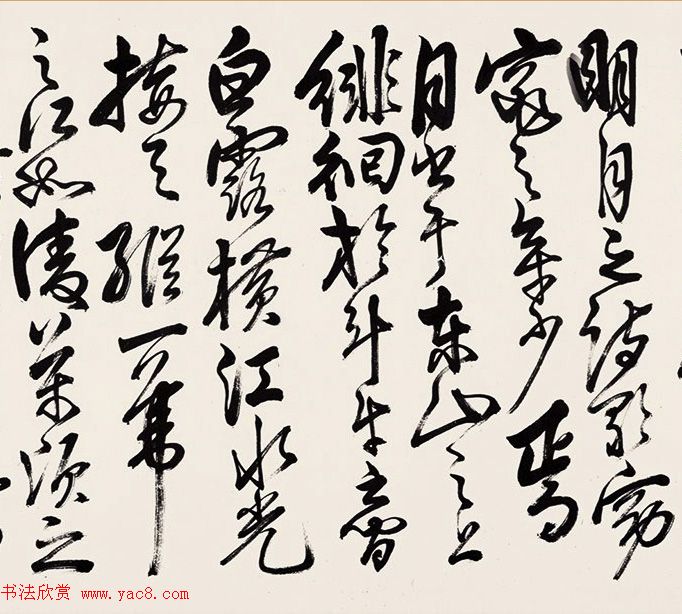 明月之詩歌窈
窕之章少焉
月出于東山之上
徘徊於斗牛之間
白露橫江水光
接天縱一葦
之所如凌萬頃之
书法欣赏 www.yac8.com